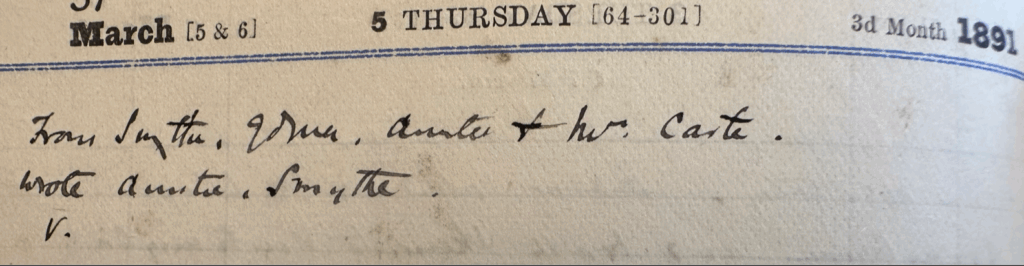 March [5 & 6] 5 THURSDAY [64-301] 3d Month 1891
From Smythe, Auntie & Mrs. Carte.
wrote Auntie, Smythe.
V.